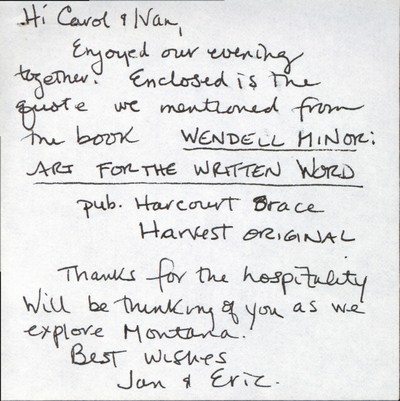 Hi Carol & Ivan,
Enjoyed our evening
together. Enclosed is the
quote we mentioned from
the book WENDELL MINOR:
ART FOR THE WRITTEN WORD
pub. Harcourt Brace
Harvest ORIGINAL
Thanks for the hospitality
Will be thinking of you as we
explore Montana.
Best Wishes
Jan & Eric.